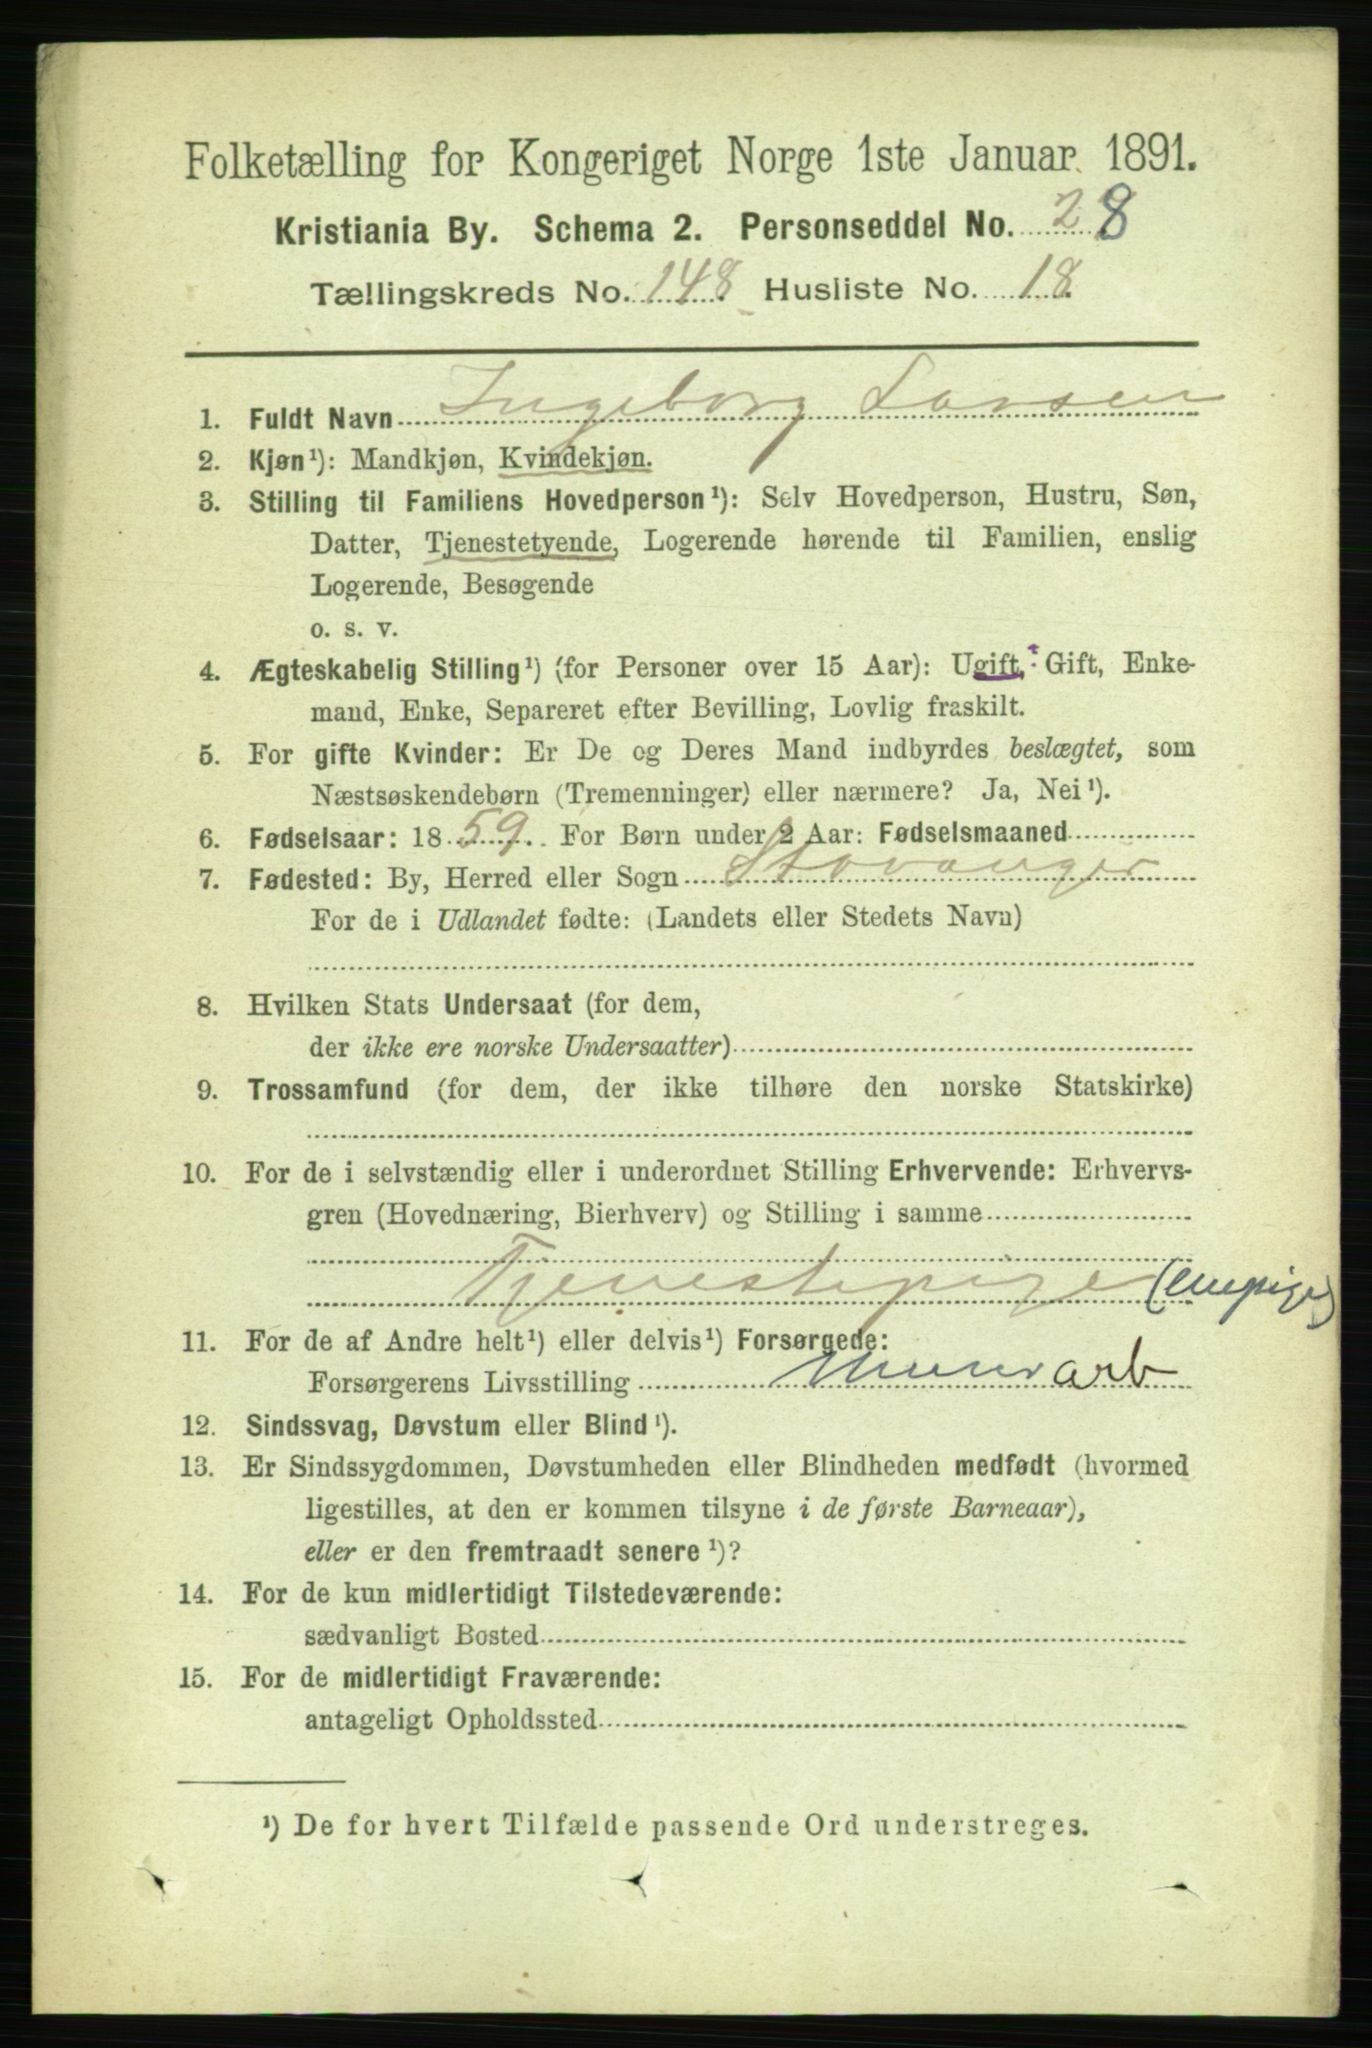 Folketælling for Kongeriget Norge 1ste Januar 1891.
Kristiania By. Schema 2. Personseddel No. 28
Tællingskreds No. 148 Husliste No. 18.
1. Fuldt Navn Ingeborg Larsen
2. Kjøn¹): Mandkjøn, Kvindekjøn.
3. Stilling til Familiens Hovedperson¹): Selv Hovedperson, Hustru, Søn,
Datter, Tjenestetyende, Logerende hørende til Familien, enslig
Logerende, Besøgende
o. s. v.
4. Ægteskabelig Stilling¹) (for Personer over 15 Aar): Ugift, Gift, Enke-
mand, Enke, Separeret efter Bevilling, Lovlig fraskilt.
5. For gifte Kvinder: Er De og Deres Mand indbyrdes beslægtet, som
Næstsøskendebørn (Tremenninger) eller nærmere? Ja, Nei¹).
6. Fødselsaar: 1859. For Børn under 2 Aar: Fødselsmaaned
7. Fødested: By, Herred eller Sogn Stavanger
For de i Udlandet fødte: (Landets eller Stedets Navn)
8. Hvilken Stats Undersaat (for dem,
der ikke ere norske Undersaatter)
9. Trossamfund (for dem, der ikke tilhøre den norske Statskirke)
10. For de i selvstændig eller i underordnet Stilling Erhvervende: Erhvervs-
gren (Hovednæring, Bierhverv) og Stilling i samme
Tjenestepige (enepige)
11. For de af Andre helt¹) eller delvis¹) Forsørgede:
Forsørgerens Livsstilling arb
12. Sindssvag, Døvstum eller Blind¹).
13. Er Sindssygdommen, Døvstumheden eller Blindheden medfødt (hvormed
ligestilles, at den er kommen tilsyne i de første Barneaar),
eller er den fremtraadt senere¹)?
14. For de kun midlertidigt Tilstedeværende:
sædvanligt Bosted
15. For de midlertidigt Fraværende:
antageligt Opholdssted
¹) De for hvert Tilfælde passende Ord understreges.